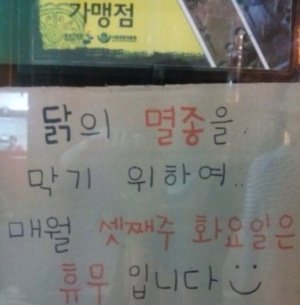 가맹점
닭의 멸종을..
막기 위하여..
매월 셋째주 화요일은
휴무 입니다